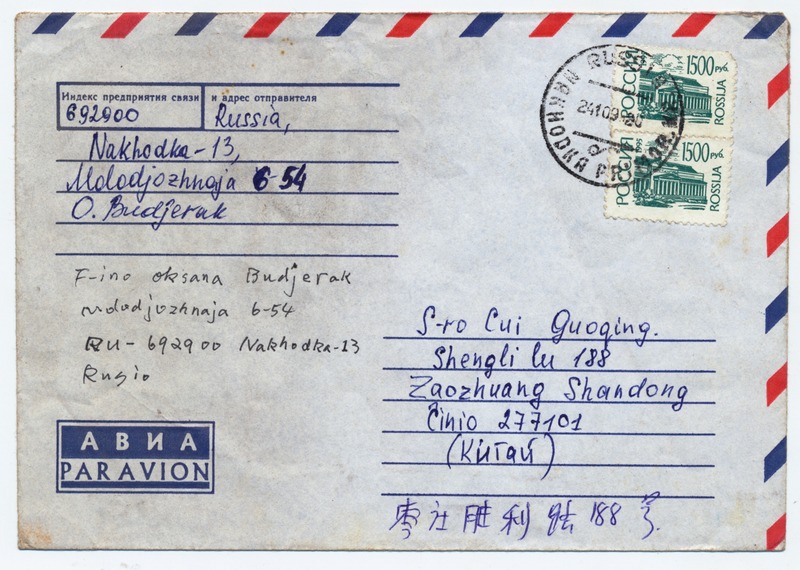 Индекс предприятия связи и адрес отправителя
692900 Russia,
Nakhodka-13,
Molodjozhnaja 6-54
O. Budjerak
F-ino Oksana Budjerak
Molodjozhnaja 6-54
RU-692900 Nakhodka-13
Rusio
АВИА
PAR AVION
РОССИЯ 1995 1500 РУБ. ROSSIJA
РОССИЯ 1995 1500 РУБ. ROSSIJA
S-ro Cui Guoqing.
Shengli lu 188
Zaozhuang Shandong
Ĉinio 277101
(Китай)
枣庄胜利路188号